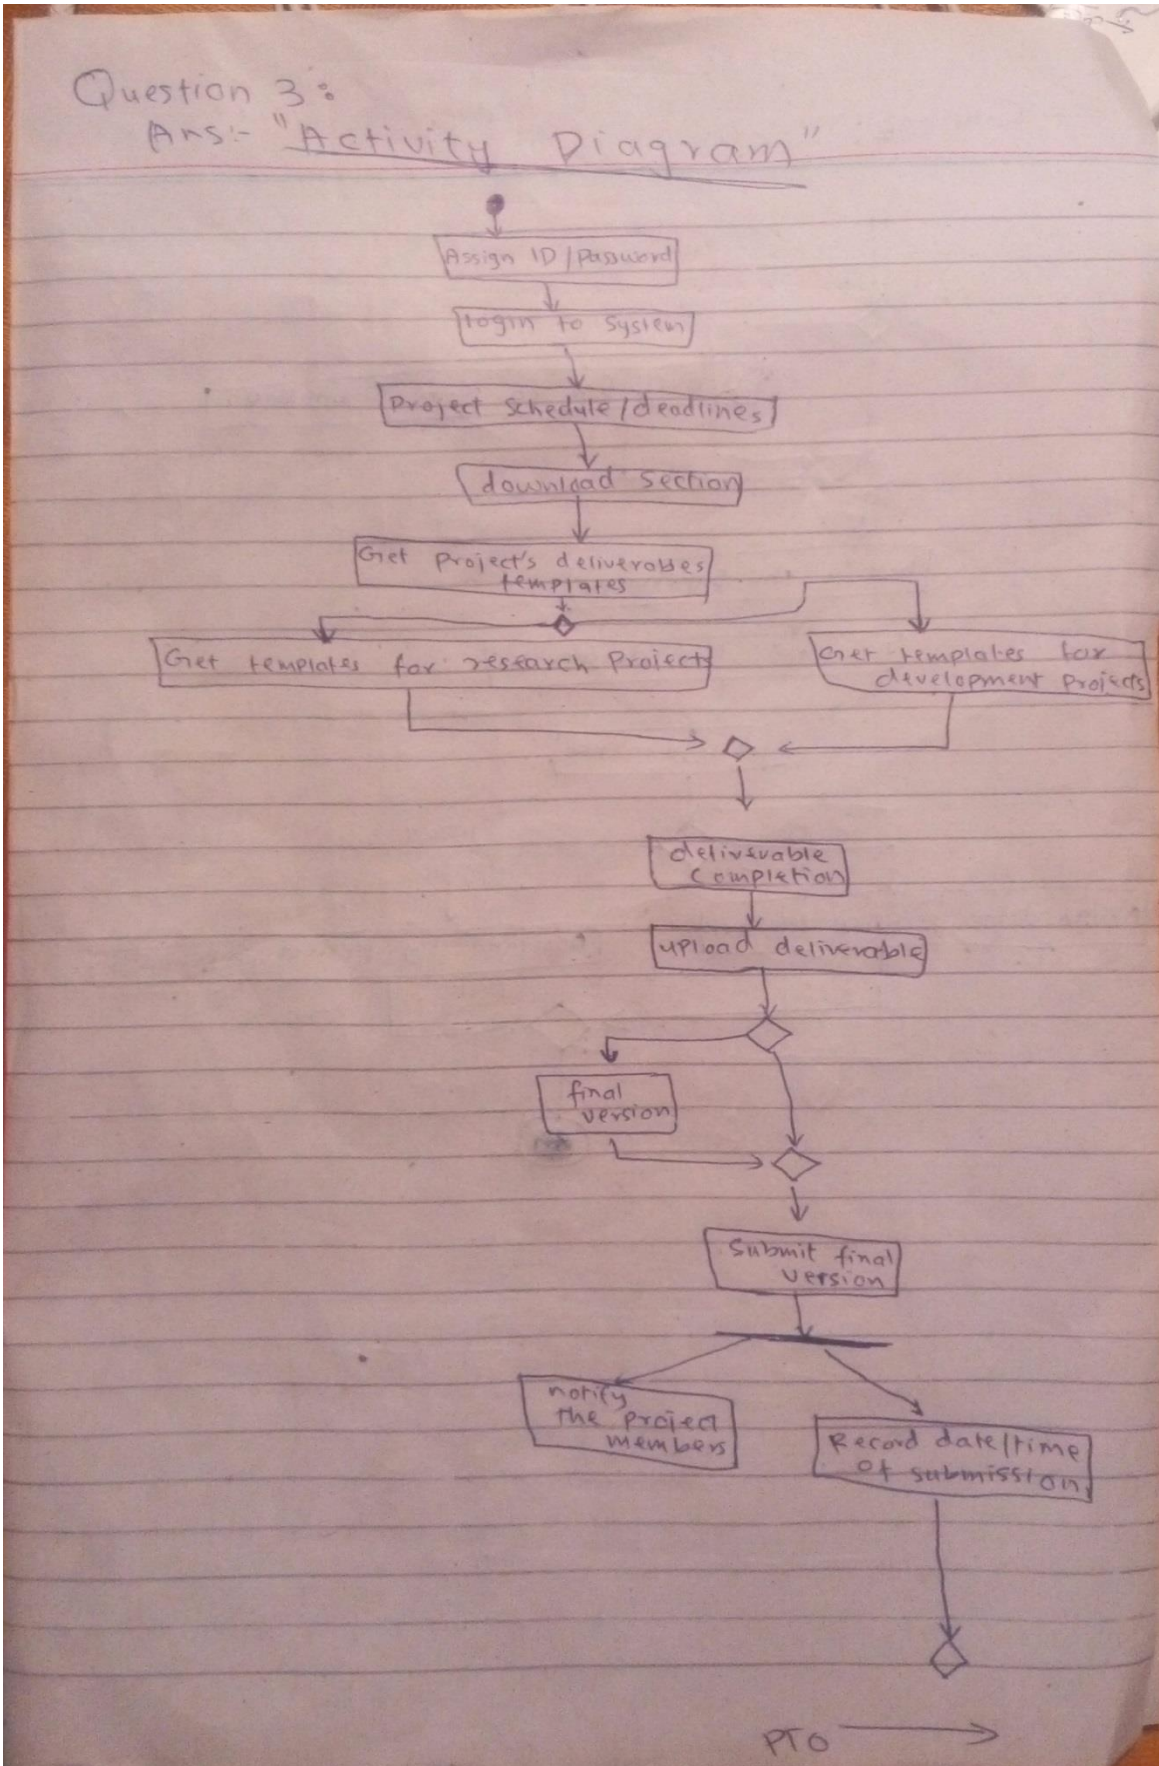 Question 3:
Ans:- "Activity Diagram"
Assign ID/Password
login to system
Project schedule/deadlines
download section
Get Project's deliverables
templates
Get templates for research Project
Get templates for
development Projects
deliverable
completion
upload deliverable
final
version
Submit final
version
notify
the project
members
Record date/time
of submission
PTO